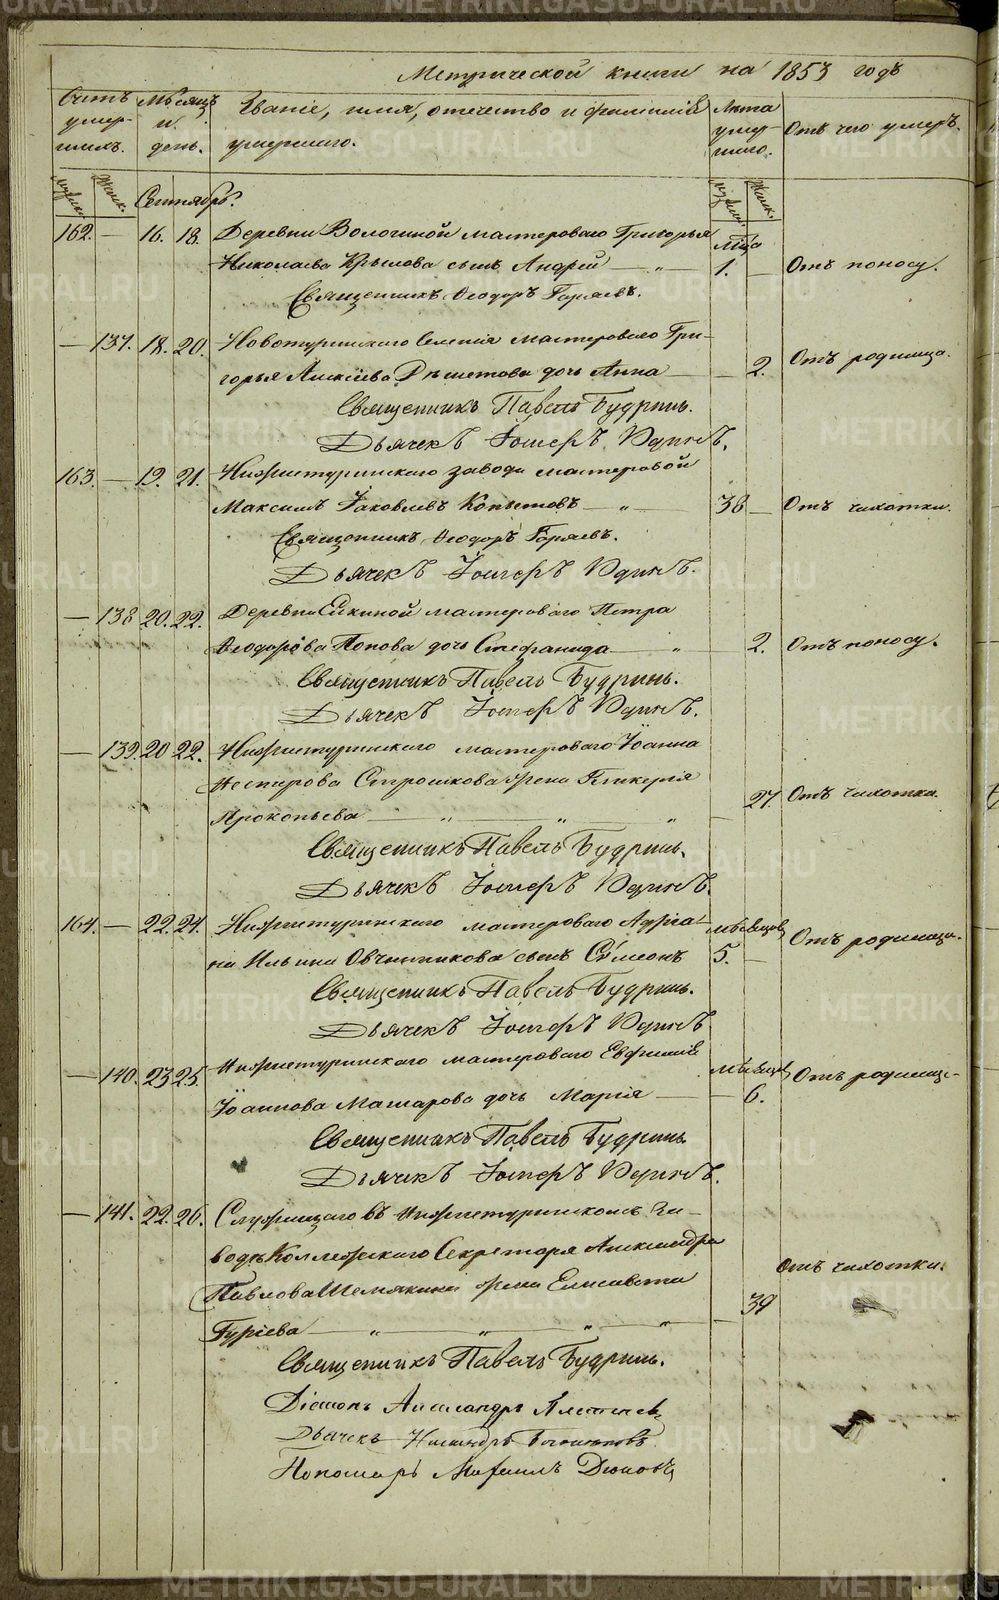 Метрической книги на 1853 годъ
Счетъ умер-шихъ. Мѣсяцъ и день. Званіе, имя, отечество и фамилія умершаго. Лѣта умер-шаго. Отъ чего умеръ.
Муж. Женск. Муж. Женск.
Сентябрь.
162. — 16. 18. Деревни Волочиной мастероваго Григорья мѣс
Николаева Крылова сынъ Андрей — „ — 1. — Отъ поносу.
Священникъ Ѳеодоръ Горяевъ.
— 137. 18. 20. Новотуринскаго селенія мастероваго Гри-
горья Алексіева Рѣшетова дочь Анна — — 2. Отъ родимца.
Священникъ Павелъ Будринъ.
Дьячекъ Іосифъ Удинъ.
163. — 19. 21. Нижнетуринскаго завода мастеровой
Максимъ Іаковлевъ Копытовъ — „ — 38 — Отъ чахотки.
Священникъ Ѳеодоръ Горяевъ.
Дьячекъ Іосифъ Удинъ.
— 138 20. 22. Деревни Елкиной мастероваго Петра
Ѳеодорова Попова дочь Стефанида — „ 2. Отъ поносу.
Священникъ Павелъ Будринъ.
Дьячекъ Іосифъ Удинъ.
— 139. 20 22. Нижнетуринскаго мастероваго Іоанна
Нестерова Строшкова жена Гликерія
Прокопьева — „ — „ — „ — 27 Отъ чахотки.
Священникъ Павелъ Будринъ.
Дьячекъ Іосифъ Удинъ.
164. — 22. 24. Нижнетуринскаго мастероваго Адріа- мѣсяцовъ
на Ильина Овчинникова сынъ Сѵмеонъ 5. — Отъ родимца.
Священникъ Павелъ Будринъ.
Дьячекъ Іосифъ Удинъ
— 140. 23 25. Нижнетуринскаго мастероваго Евфимія мѣсяцовъ
Іоаннова Машарова дочь Марія — — 6. Отъ родимца
Священникъ Павелъ Будринъ
Дьячекъ Іосифъ Удинъ.
— 141. 22. 26. Служащаго въ Нижнетуринскомъ За-
водѣ Коллежскаго Секретаря Александра
Павлова Шемякина жена Елисавета Отъ чахотки.
Гуріева — „ — „ — „ — „ — 39
Священникъ Павелъ Будринъ.
Діаконъ Александръ
Дьячекъ
Пономарь Михаилъ
METRIKI.GASO-URAL.RU